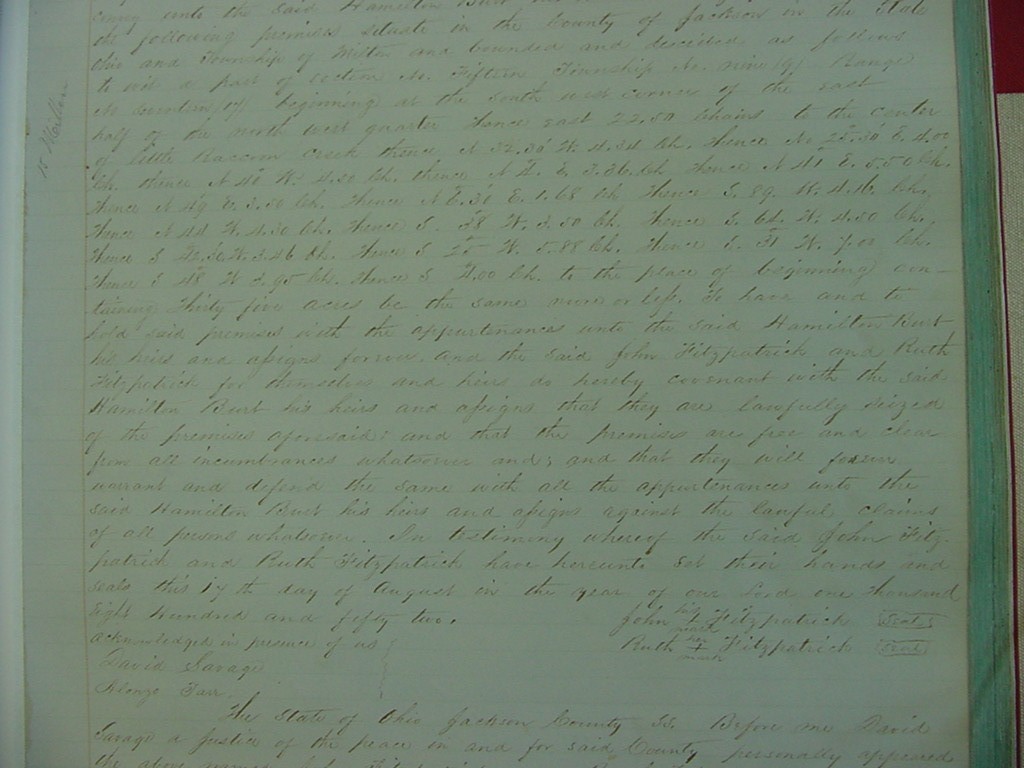 convey unto the said Hamilton Burt
the following premises situate in the County of Jackson in the State
Ohio and Township of Milton and bounded and described as follows
to wit a part of section No. Fifteen Township No. nine (9) Range
No Seventeen beginning at the south west corner of the east
half of the north west quarter thence east 22.50 chains to the center
of little Raccoon Creek thence N 32.30 W. 4.34 Ch. thence No 25.30 E 4.00
Ch. thence N 40 W. 4.50 Ch. thence N 2. E. 3.36 Ch. thence N 41 E. 5.50 Ch.
thence N 49 E 3.50 Ch. thence N E. 1.68 Ch thence S. 89. W. 4.16 Ch,
thence N 44 W. 4.30 Ch. thence S. 58 W. 3.50 Ch. thence S. 62. W. 4.50 Ch.
thence S W. 3.46 Ch. thence S W. 5.88 Ch. thence S. 31 W. 7.00 Ch.
thence S 48 W 2.95 Ch. thence S 4.00 Ch. to the place of beginning con-
taining Thirty five acres be the same more or less. To have and to
hold said premises with the appurtenances unto the said Hamilton Burt
his heirs and assigns forever. And the said John Fitzpatrick and Ruth
Fitzpatrick for themselves and heirs do hereby covenant with the said
Hamilton Burt his heirs and assigns that they are lawfully seized
of the premises aforesaid; and that the premises are free and clear
from all incumbrances whatsoever and; and that they will forever
warrant and defend the same with all the appurtenances unto the
said Hamilton Burt his heirs and assigns against the lawful claims
of all persons whatsoever. In testimony whereof the said John Fitz-
patrick and Ruth Fitzpatrick have hereunto set their hands and
seals this 17th day of August in the year of our Lord one thousand
Eight Hundred and fifty two.
John his X mark Fitzpatrick Seal
Ruth her X mark Fitzpatrick Seal
Acknowledged in presence of us
David Savage
Alonzo Farr.
The State of Ohio Jackson County SS. Before me David
Savage a justice of the peace in and for said County personally appeared
the above named John Fitzpatrick